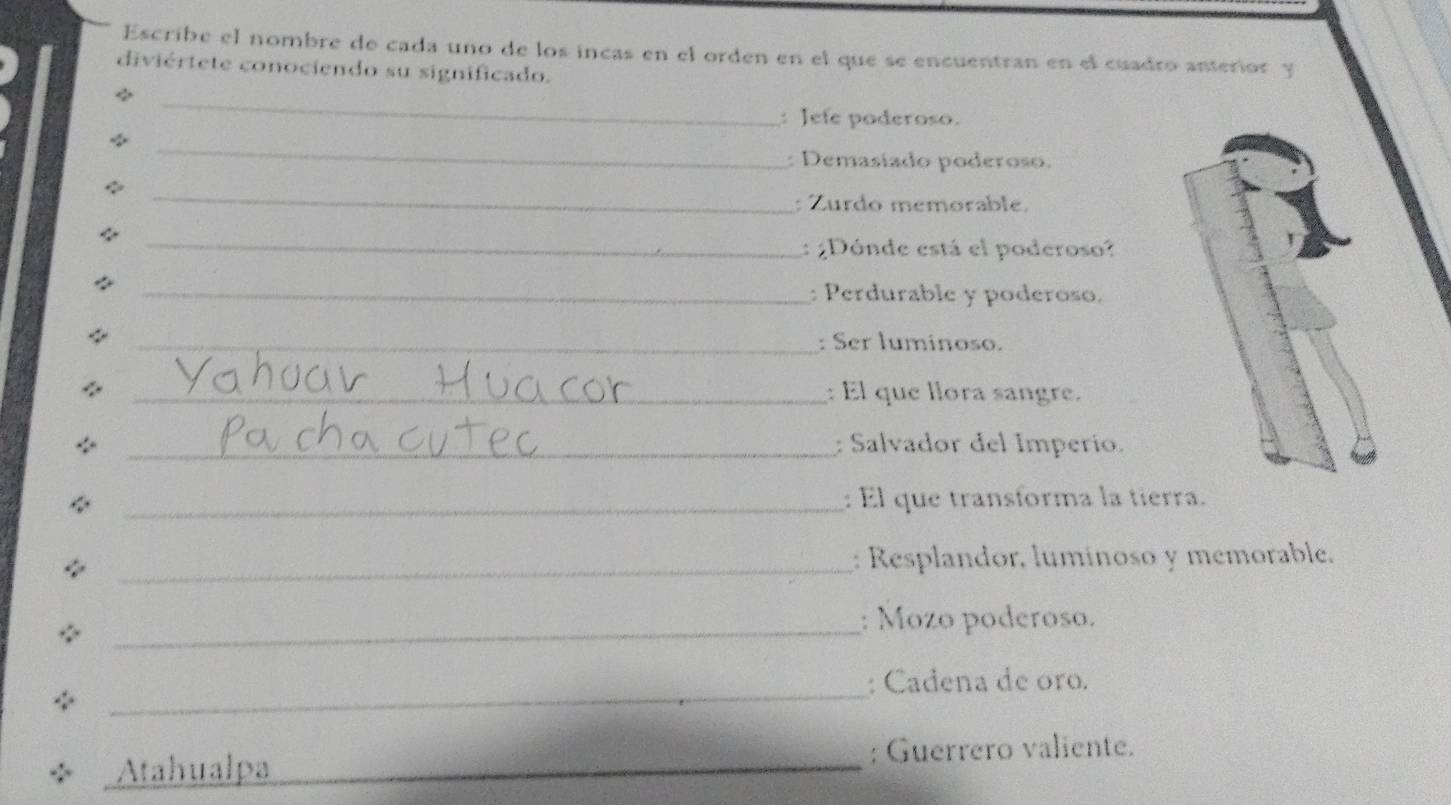 Escribe el nombre de cada uno de los incas en el orden en el que se encuentran en el cuadro anterior y
diviértete conociendo su significado.
: Jefe poderoso.
: Demasiado poderoso.
: Zurdo memorable.
: ¿Dónde está el poderoso?
: Perdurable y poderoso.
: Ser luminoso.
Yahuar Huacor : El que llora sangre.
Pachacutec : Salvador del Imperio.
: El que transforma la tierra.
: Resplandor, luminoso y memorable.
: Mozo poderoso.
: Cadena de oro.
Atahualpa : Guerrero valiente.